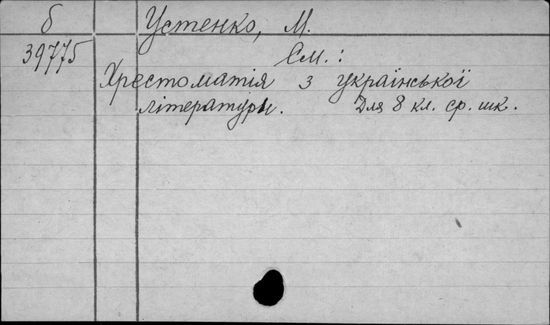 б Устенко, М.
39775 См.:
Хрестоматія з української
літератури. Для 8 кл. ср. шк.